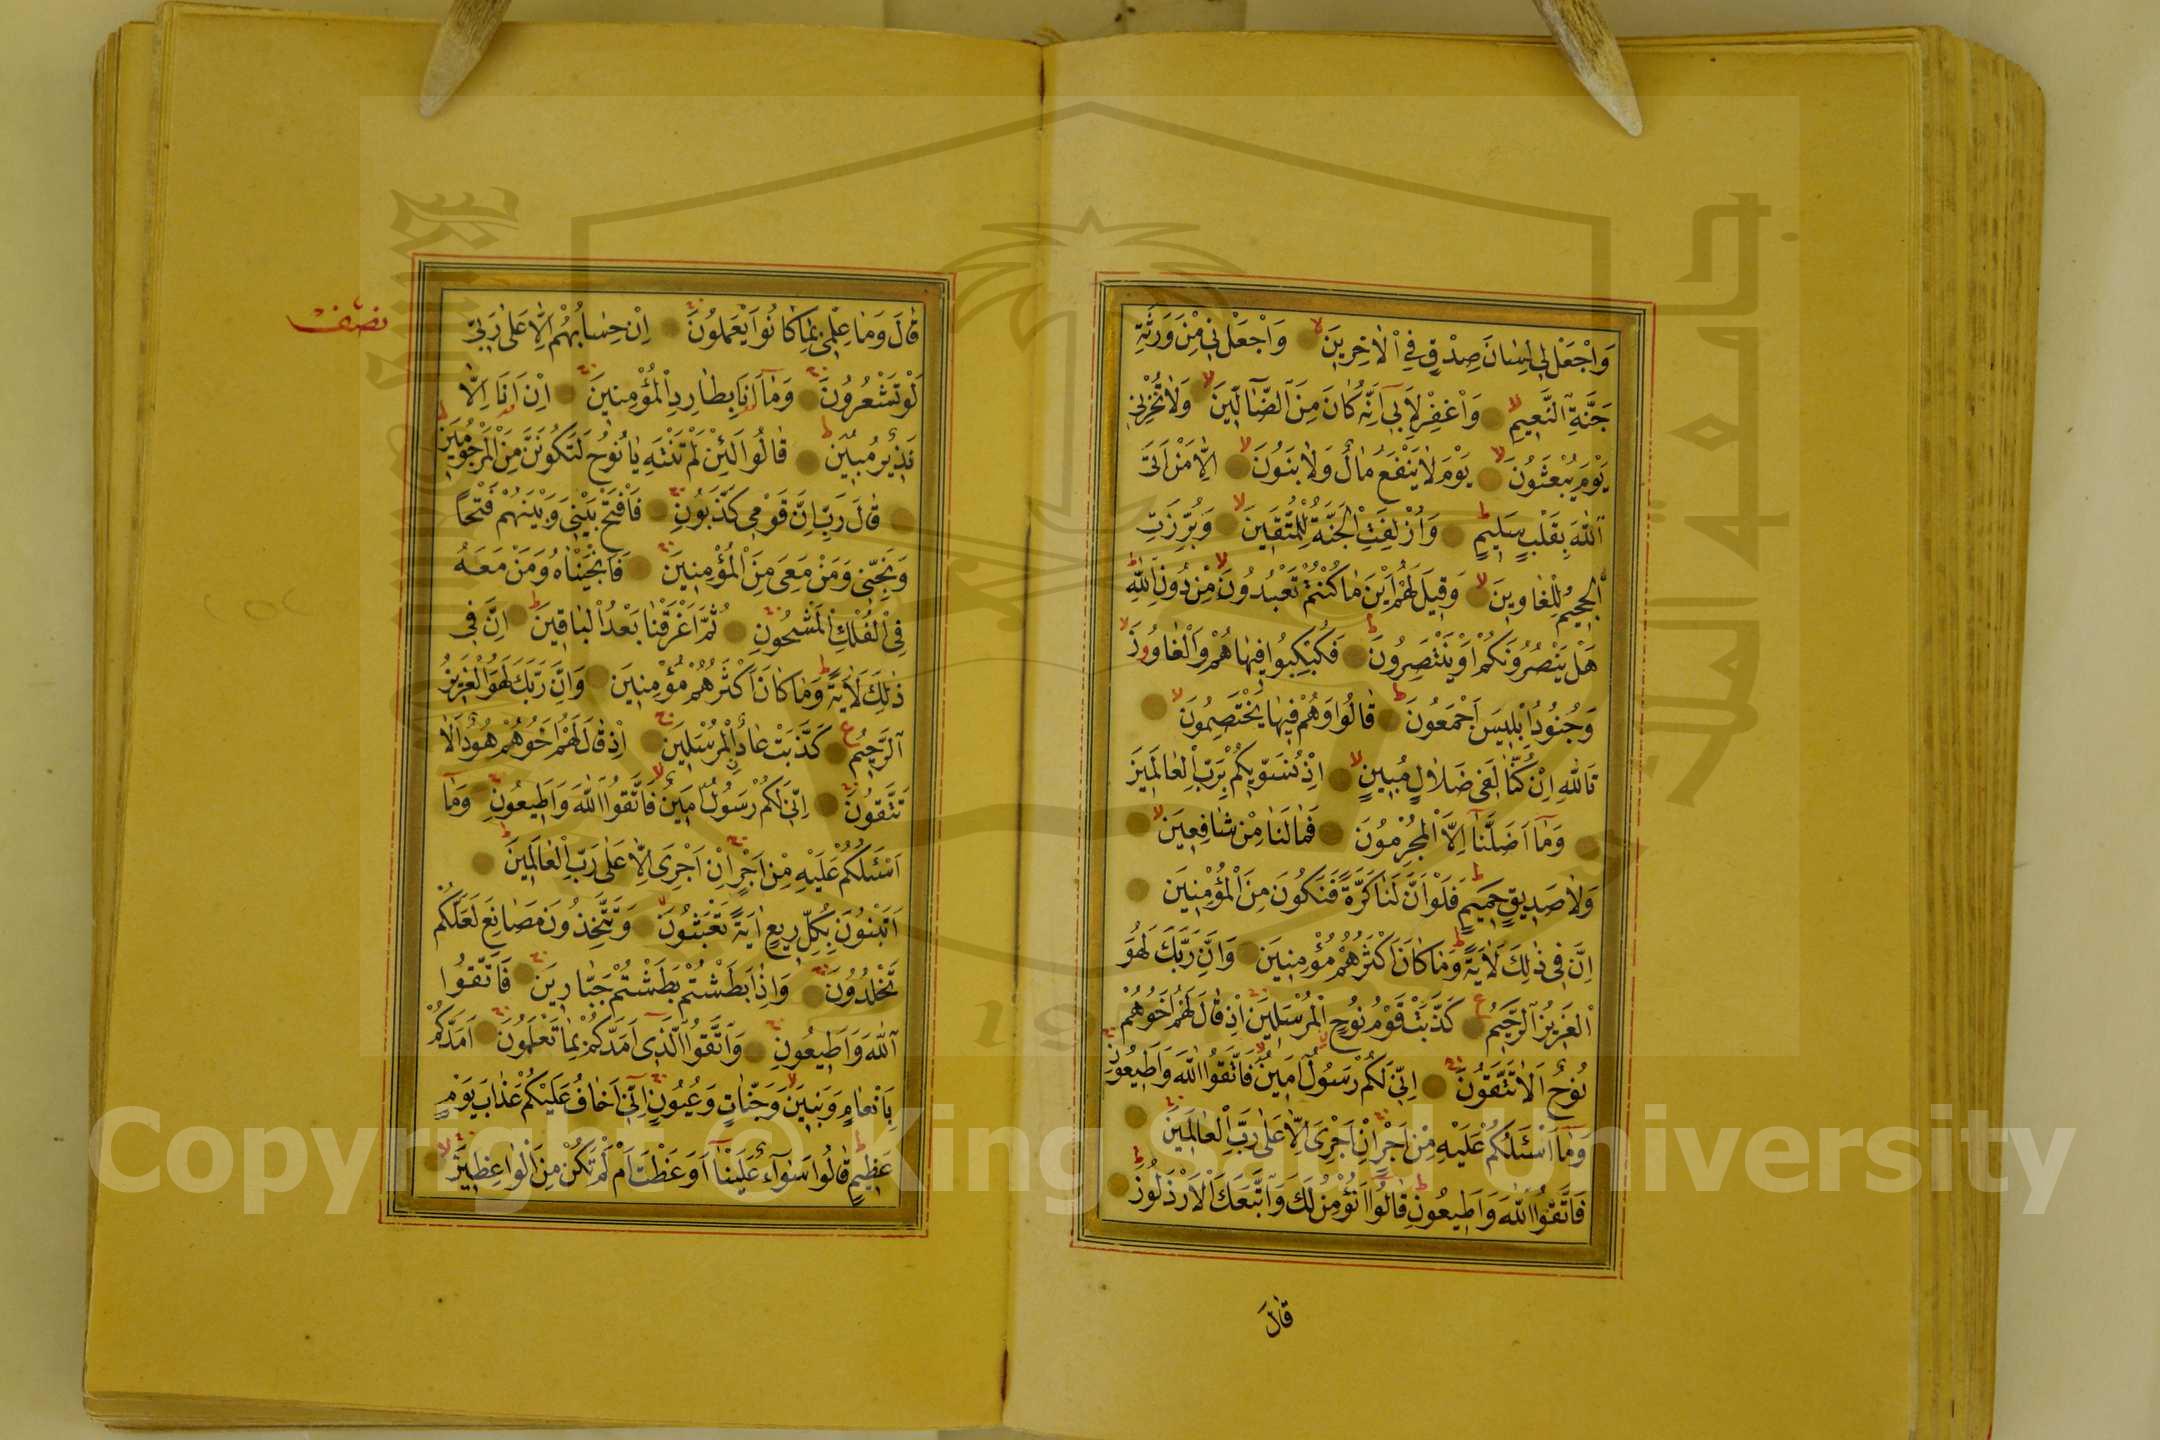 وَاجْعَلْ لِي لِسَانَ صِدْقٍ فِي الْاٰخِرِينَ وَاجْعَلْنِي مِنْ وَرَثَةِ
جَنَّةِ النَّعِيمِ وَاغْفِرْ لِاَبِي اِنَّهُ كَانَ مِنَ الضَّالِّينَ وَلَا تُخْزِنِي
يَوْمَ يُبْعَثُونَ يَوْمَ لَا يَنْفَعُ مَالٌ وَلَا بَنُونَ اِلَّا مَنْ اَتَى
اللّٰهَ بِقَلْبٍ سَلِيمٍ وَاُزْلِفَتِ الْجَنَّةُ لِلْمُتَّقِينَ وَبُرِّزَتِ
الْجَحِيمُ لِلْغَاوِينَ وَقِيلَ لَهُمْ اَيْنَ مَا كُنْتُمْ تَعْبُدُونَ مِنْ دُونِ اللّٰهِ
هَلْ يَنْصُرُونَكُمْ اَوْ يَنْتَصِرُونَ فَكُبْكِبُوا فِيهَا هُمْ وَالْغَاوُونَ
وَجُنُودُ اِبْلِيسَ اَجْمَعُونَ قَالُوا وَهُمْ فِيهَا يَخْتَصِمُونَ
تَاللّٰهِ اِنْ كُنَّا لَفِي ضَلَالٍ مُبِينٍ اِذْ نُسَوِّيكُمْ بِرَبِّ الْعَالَمِينَ
وَمَا اَضَلَّنَا اِلَّا الْمُجْرِمُونَ فَمَا لَنَا مِنْ شَافِعِينَ
وَلَا صَدِيقٍ حَمِيمٍ فَلَوْ اَنَّ لَنَا كَرَّةً فَنَكُونَ مِنَ الْمُؤْمِنِينَ
اِنَّ فِي ذٰلِكَ لَاٰيَةً وَمَا كَانَ اَكْثَرُهُمْ مُؤْمِنِينَ وَاِنَّ رَبَّكَ لَهُوَ
الْعَزِيزُ الرَّحِيمُ كَذَّبَتْ قَوْمُ نُوحٍ الْمُرْسَلِينَ اِذْ قَالَ لَهُمْ اَخُوهُمْ
نُوحٌ اَلَا تَتَّقُونَ اِنِّي لَكُمْ رَسُولٌ اَمِينٌ فَاتَّقُوا اللّٰهَ وَاَطِيعُونِ
وَمَا اَسْئَلُكُمْ عَلَيْهِ مِنْ اَجْرٍ اِنْ اَجْرِيَ اِلَّا عَلَى رَبِّ الْعَالَمِينَ
فَاتَّقُوا اللّٰهَ وَاَطِيعُونِ قَالُوا اَنُؤْمِنُ لَكَ وَاتَّبَعَكَ الْاَرْذَلُونَ
قَالَ
نصف
قَالَ وَمَا عِلْمِي بِمَا كَانُوا يَعْمَلُونَ اِنْ حِسَابُهُمْ اِلَّا عَلَى رَبِّي
لَوْ تَشْعُرُونَ وَمَا اَنَا بِطَارِدِ الْمُؤْمِنِينَ اِنْ اَنَا اِلَّا
نَذِيرٌ مُبِينٌ قَالُوا لَئِنْ لَمْ تَنْتَهِ يَا نُوحُ لَتَكُونَنَّ مِنَ الْمَرْجُومِينَ
قَالَ رَبِّ اِنَّ قَوْمِي كَذَّبُونِ فَافْتَحْ بَيْنِي وَبَيْنَهُمْ فَتْحًا
وَنَجِّنِي وَمَنْ مَعِيَ مِنَ الْمُؤْمِنِينَ فَاَنْجَيْنَاهُ وَمَنْ مَعَهُ
فِي الْفُلْكِ الْمَشْحُونِ ثُمَّ اَغْرَقْنَا بَعْدُ الْبَاقِينَ اِنَّ فِي
ذٰلِكَ لَاٰيَةً وَمَا كَانَ اَكْثَرُهُمْ مُؤْمِنِينَ وَاِنَّ رَبَّكَ لَهُوَ الْعَزِيزُ
الرَّحِيمُ كَذَّبَتْ عَادٌ الْمُرْسَلِينَ اِذْ قَالَ لَهُمْ اَخُوهُمْ هُودٌ اَلَا
تَتَّقُونَ اِنِّي لَكُمْ رَسُولٌ اَمِينٌ فَاتَّقُوا اللّٰهَ وَاَطِيعُونِ وَمَا
اَسْئَلُكُمْ عَلَيْهِ مِنْ اَجْرٍ اِنْ اَجْرِيَ اِلَّا عَلَى رَبِّ الْعَالَمِينَ
اَتَبْنُونَ بِكُلِّ رِيعٍ اٰيَةً تَعْبَثُونَ وَتَتَّخِذُونَ مَصَانِعَ لَعَلَّكُمْ
تَخْلُدُونَ وَاِذَا بَطَشْتُمْ بَطَشْتُمْ جَبَّارِينَ فَاتَّقُوا
اللّٰهَ وَاَطِيعُونِ وَاتَّقُوا الَّذِي اَمَدَّكُمْ بِمَا تَعْلَمُونَ اَمَدَّكُمْ
بِاَنْعَامٍ وَبَنِينَ وَجَنَّاتٍ وَعُيُونٍ اِنِّي اَخَافُ عَلَيْكُمْ عَذَابَ يَوْمٍ
عَظِيمٍ قَالُوا سَوَاءٌ عَلَيْنَا اَوَعَظْتَ اَمْ لَمْ تَكُنْ مِنَ الْوَاعِظِينَ
Copyright © King Saud University